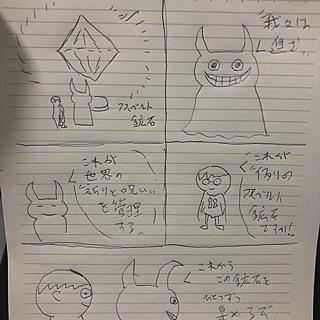 アスベルト
鉱石
我々は
これが
世界の
祈りと呪い
を管理
する。
これが
アスベルト
鉱石ですか!!
これから
この鉱石を
ひとつずつ
集めるぞ